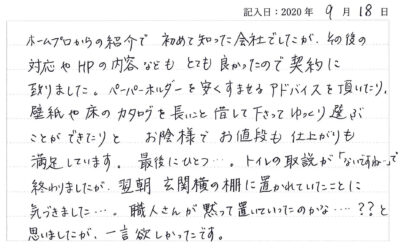 記入日：2020年 9月 18日
ホームプロからの紹介で 初めて知った会社でしたが、その後の
対応やHPの内容なども とても良かったので契約に
致りました。ペーパーホルダーを安くすませるアドバイスを頂いたり、
壁紙や床のカタログを長いこと借して下さってゆっくり選ぶ
ことができたりと お陰様で お値段も 仕上がりも
満足しています。 最後にひとつ…。トイレの取説が「ないですねー」で
終わりましたが、翌朝 玄関横の棚に置かれていたことに
気づきました…。職人さんが黙って置いていったのかな…??と
思いましたが、一言欲しかったです。